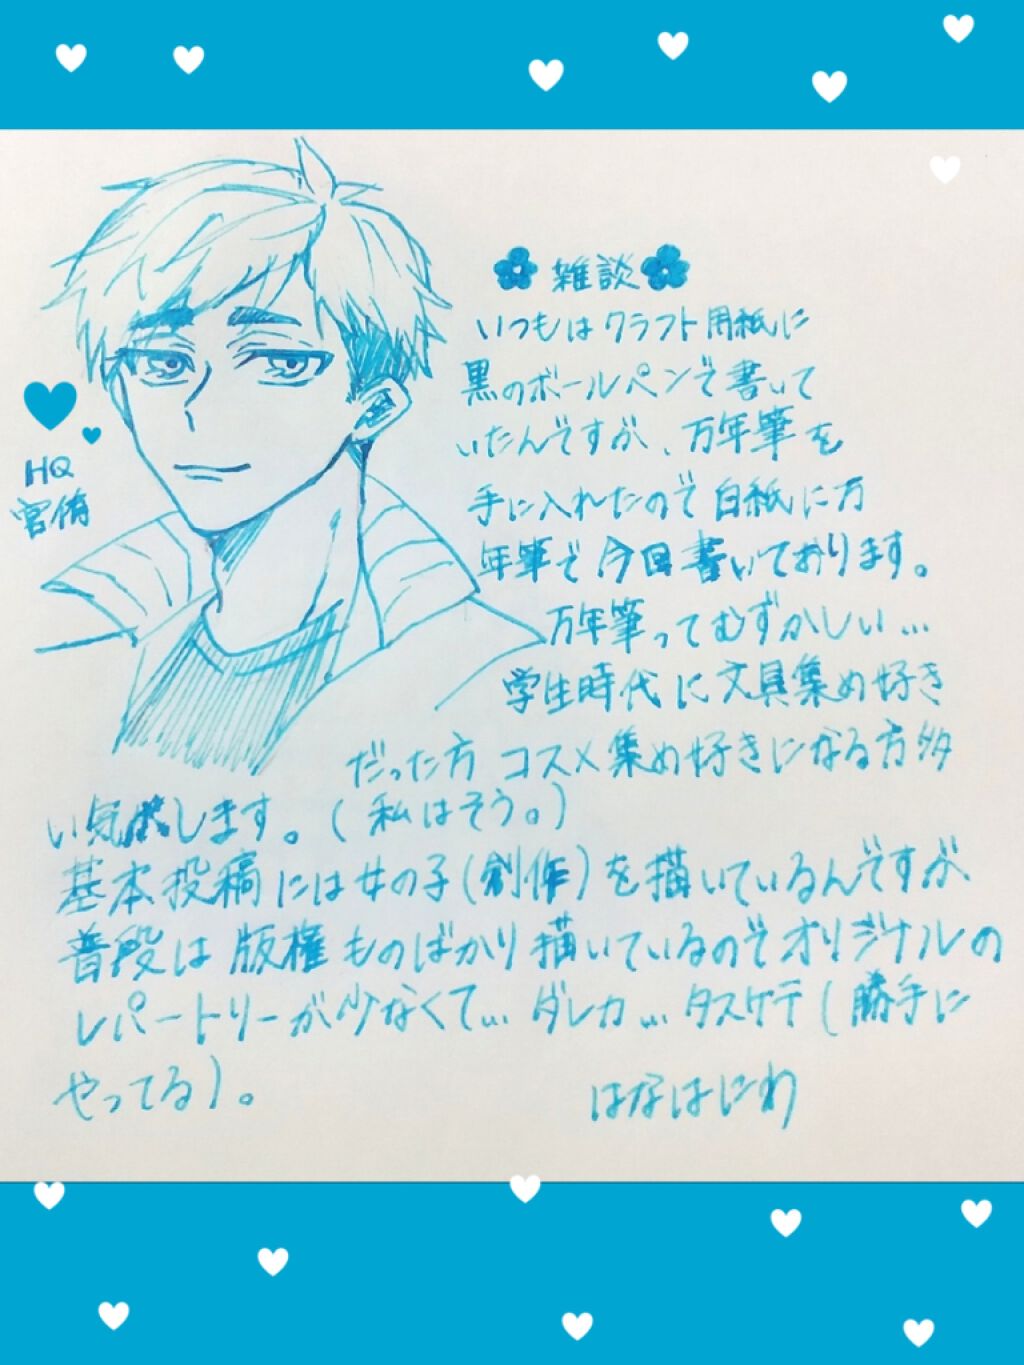 雑談
いつもはクラフト用紙に
黒のボールペンで書いて
いたんですが、万年筆を
手に入れたので白紙に万
年筆で今回書いております。
万年筆ってむずかしい…
学生時代に文具集め好き
だった方コスメ集め好きになる方多
い気がします。(私はそう。)
基本投稿には女の子(創作)を描いているんですが、
普段は版権ものばかり描いているのでオリジナルの
レパートリーが少なくて…ダレカ…タスケテ(勝手に
やってろ)。
はなはにわ
HQ
宮侑